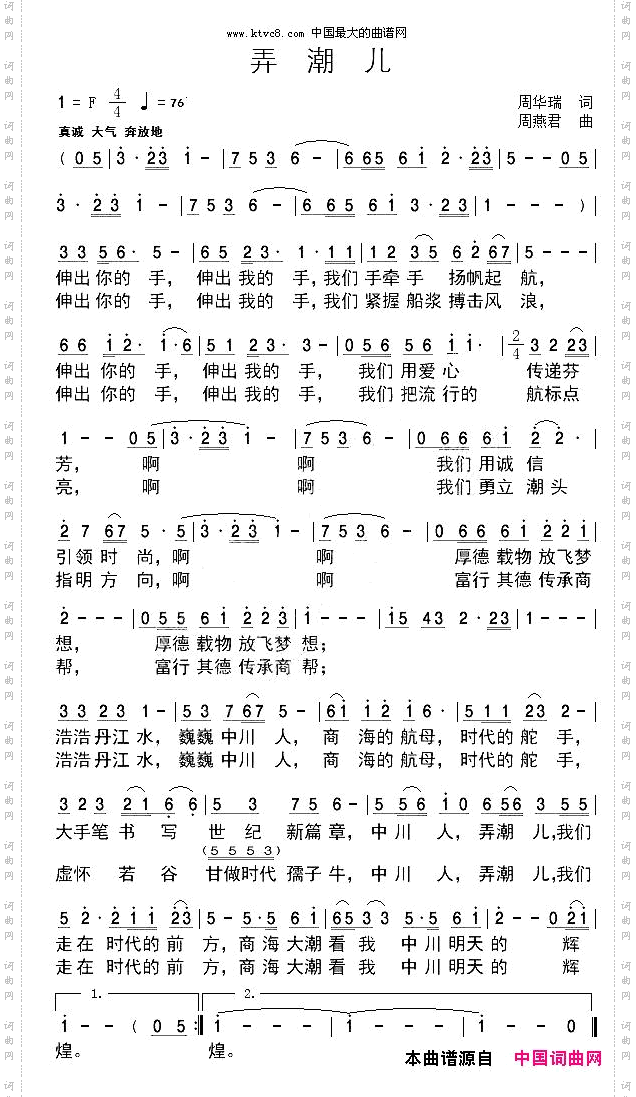 www.ktvc8.com 中国最大的曲谱网
弄 潮 儿
1 = F 4/4 ♩= 76
周华瑞 词
真诚 大气 奔放地
周燕君 曲
( 0 5 | 3 · 2 3 1 - | 7 5 3 6 - | 6 65 6 1 2 · 23 | 5 - - 0 5 |
3 · 23 1 - | 7 5 3 6 - | 6 65 61 3 · 23 | 1 - - - ) |
3 3 5 6 · 5 - | 6 5 2 3 · 1 · 1 1 | 1 2 3 5 6 2 67 | 5 - - - |
伸出 你的 手, 伸出 我的 手,我们 手牵 手 扬帆起 航,
伸出 你的 手, 伸出 我的 手,我们 紧握 船桨 搏击风 浪,
6 6 1 2 · 1 · 6 | 5 5 2 3 · 3 - | 0 56 56 1 1 · | 2/4 3 2 23 |
伸出 你的 手, 伸出 我的 手, 我们 用爱 心 传递芬
伸出 你的 手, 伸出 我的 手, 我们 把流 行的 航标点
1 - - 0 5 | 3 · 23 1 - | 7 5 3 6 - | 0 66 6 1 2 2 · |
芳, 啊 啊 我们 用诚 信
亮, 啊 啊 我们 勇立 潮头
2 7 67 5 · 5 | 3 · 23 1 - | 7 5 3 6 - | 0 66 6 1 2 2 1 |
引领 时 尚,啊 啊 厚德 载物 放飞梦
指明 方 向,啊 啊 富行 其德 传承商
2 - - - | 0 55 6 1 2 23 | 1 - - - | 15 43 2 · 23 | 1 - - - |
想, 厚德 载物 放飞梦 想;
帮, 富行 其德 传承商 帮;
3 3 2 3 1 - | 5 3 7 67 5 - | 6 1 1 2 1 6 · | 5 1 1 2 3 2 - |
浩浩 丹江 水, 巍巍 中川 人, 商 海的 航母, 时代的 舵 手,
浩浩 丹江 水, 巍巍 中川 人, 商 海的 航母, 时代的 舵 手,
3 2 3 2 1 6 · 6 | 5 3 7 5 6 - | 5 56 1 0 6 56 | 3 - - 5 5 |
大手笔 书 写 世 纪 新篇 章, 中 川 人, 弄潮 儿,我们
( 5 5 5 3 )
虚怀 若 谷 甘做时代 孺子 牛, 中 川 人, 弄潮 儿,我们
5 2 · 2 1 1 2 3 | 5 · 5 5 1 · 1 | 6 5 3 3 5 · 5 6 1 | 2 - - 0 2 1 |
走在 时代的 前 方, 商海 大潮 看 我 中川 明天 的 辉
走在 时代的 前 方, 商海 大潮 看 我 中川 明天 的 辉
1. 2.
1 - - ( 0 5 :‖ 1 - - - | 1 - - - | 1 - 0 ‖
煌。 煌。
本曲谱源自 中国词曲网